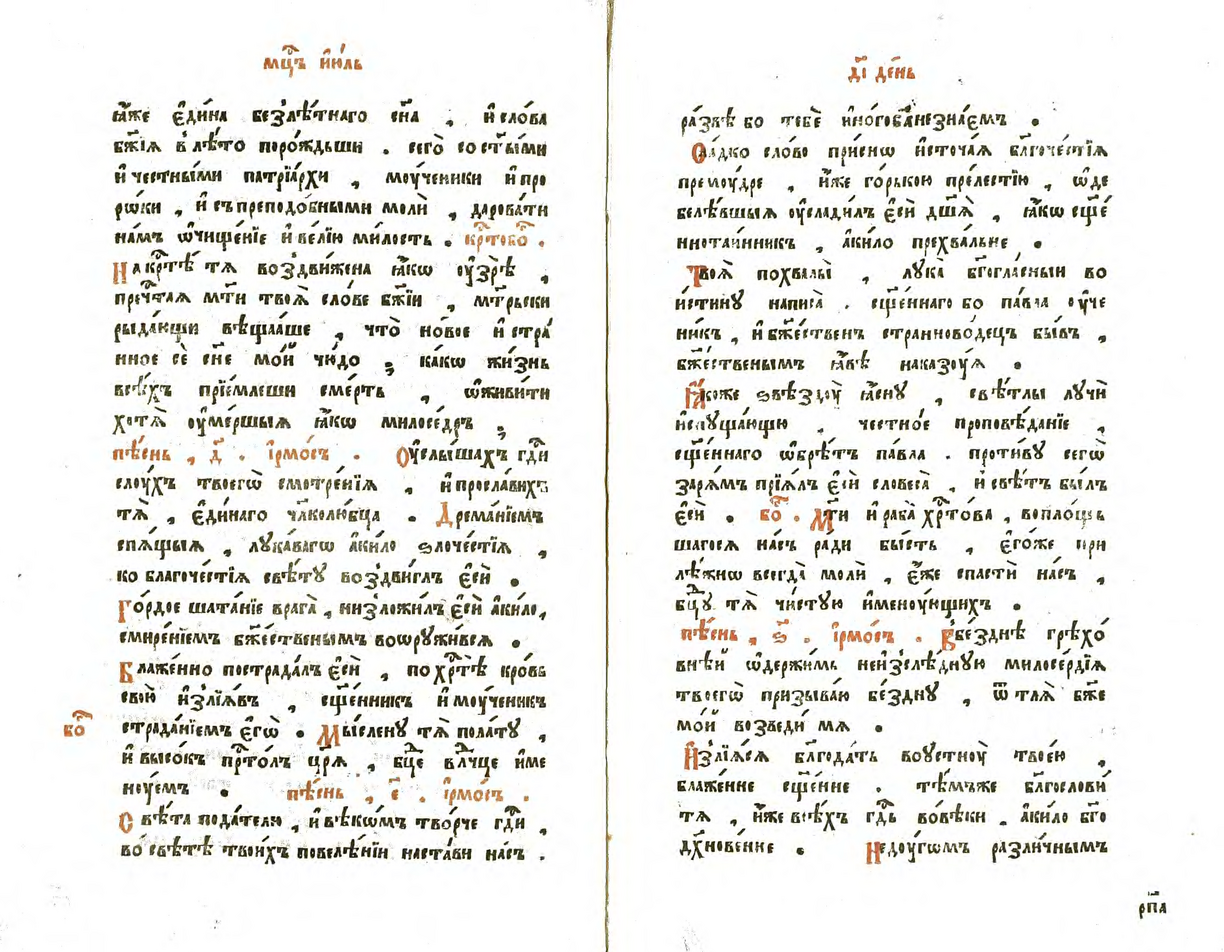 мц҇ъ і҆ю́ль
ꙗ҆́же є҆ди́на безлѣ́тнаго сн҃а , и҆ сло́ва
бж҃їѧ в лѣ́то поро́ждьши . сего̀ со ст҃ы́ми
и҆ честны́ми патрїа́рхи , мо́ученики и҆ про
ро́ки , и҆ съ преподо́бными молѝ , дарова́ти
на́мъ ѡ҆чище́нїе и҆ ве́лїю ми́лость . кр҇тобо҇ .
На кр҇тѣ̀ тѧ воздви́жена ꙗ҆́кѡ ᲂу҆зрѣ̀ ,
преч҇таѧ мт҃и твоѧ̀ сло́ве бж҃їи , мт҃рьски
рыда́ющи вѣща́аше , что̀ но́вое и҆ стра́
нное сѐ сн҃е мо́й чю́до ; ка́кѡ жи́знь
всѣ́хъ прїе́млеши сме́рть , ѡ҆живи́ти
хотѧ̀ ᲂу҆ме́ршыѧ ꙗ҆́кѡ милосе́дръ ;
пѣ́снь , д҃ . і҆рмо́съ . Оу҆слы́шахъ гд҇и
слоу́хъ твоегѡ̀ смотре́нїѧ , и҆ просла́вихъ
тѧ̀ , є҆ди́наго чл҃колю́бца . Дрема́нїемъ
спѧ́щыѧ , лука́вагѡ а҆ки́ло ѕлоче́стїѧ ,
ко благоче́стїѧ свѣ́тꙋ воздви́глъ є҆сѝ .
Го́рдое шата́нїе врага̀ , низложи́лъ є҆сѝ а҆ки́ло,
смире́нїемъ бж҃е́ственымъ воѡрꙋжи́всѧ .
Блаже́нно пострада́лъ є҆сѝ , по хр҇тѣ̀ кро́вь
свою̀ и҆злїѧ́въ , сщ҃е́нникъ и҆ мо́ученикъ
бо҇ страда́нїемъ є҆гѡ̀ . Мы́сленꙋ тѧ̀ пола́тꙋ ,
и҆ высо́къ пр҇то́лъ цр҃ѧ̀ , бц҃е вл҇чце и҆ме
ноу́емъ . пѣ́снь , є҃ . і҆рмо́съ .
Свѣ́та пода́телю , и҆ вѣкѡ́мъ тво́рче гд҇и ,
во свѣ́тѣ твои́хъ повелѣ́нїи наста́ви на́съ .
д҃і де́нь
ра́звѣ бо тебѐ и҆но́го бг҃а не зна́емъ .
Сла́дко сло́во при́снѡ и҆сточа́ѧ бл҃гоче́стїѧ
премоу́дре , и҆́же го́рькою пре́лестїю , ѡ҆де
белѣ́вшыѧ ᲂу҆слади́лъ є҆сѝ дш҃ѧ̀ , ꙗ҆́кѡ сще́
ннота́инникъ , а҆ки́ло прехва́льне .
Твоѧ̀ похвалы̀ , лꙋка̀ бг҃огла́сныи во
и҆́стинꙋ написа̀ . сщ҃е́ннаго бо па́вла ᲂу҆че
ни́къ , и҆ бж҃е́ственъ страннопо́децъ бы́въ ,
бж҃е́ственымъ ꙗ҆́вѣ наказоу́ѧ .
Ꙗ҆́коже ѕвѣздоу̀ ꙗ҆́снꙋ , свѣ́тлы лучѝ
и҆спꙋща́ющю , че́стно́е проповѣ́данїе ,
сщ҃е́ннаго ѡ҆брѣ́тъ па́вла . проти́вꙋ сегѡ̀
зарѧ́мъ прїѧ́лъ є҆сѝ словеса̀ , и҆ свѣ́тъ бы́лъ
є҆сѝ . бо҇ . Мт҃и и҆ раба̀ хр҇то́ва , вопло́щь
шагосѧ на́съ ра́ди бы́сть , є҆го́же при
лѣ́жнѡ всегда̀ молѝ , є҆́же спастѝ на́съ ,
бц҃ꙋ тѧ̀ чи́стꙋю и҆меноу́ющихъ .
пѣ́снь , ѕ҃ . і҆рмо́съ . В бе́зднѣ грѣхо́
внѣ́й ѡ҆держи́мь неи҆зслѣ́днꙋю милосе́рдїѧ
твоегѡ̀ призыва́ю бе́зднꙋ , ѿ тлѧ̀ бж҃е
мо́й возведи́ мѧ .
И҆злїѧ́сѧ бл҃года́ть во ᲂу҆стноу̀ твое́ю ,
блаже́нне сщ҃е́нне . тѣ́мъже бл҃гослови́
тѧ̀ , и҆́же всѣ́хъ гд҇ь во вѣ́ки . а҆ки́ло бг҃о
дх҃нове́нне . Недоу́гѡмъ разли́чнымъ
рп҃а